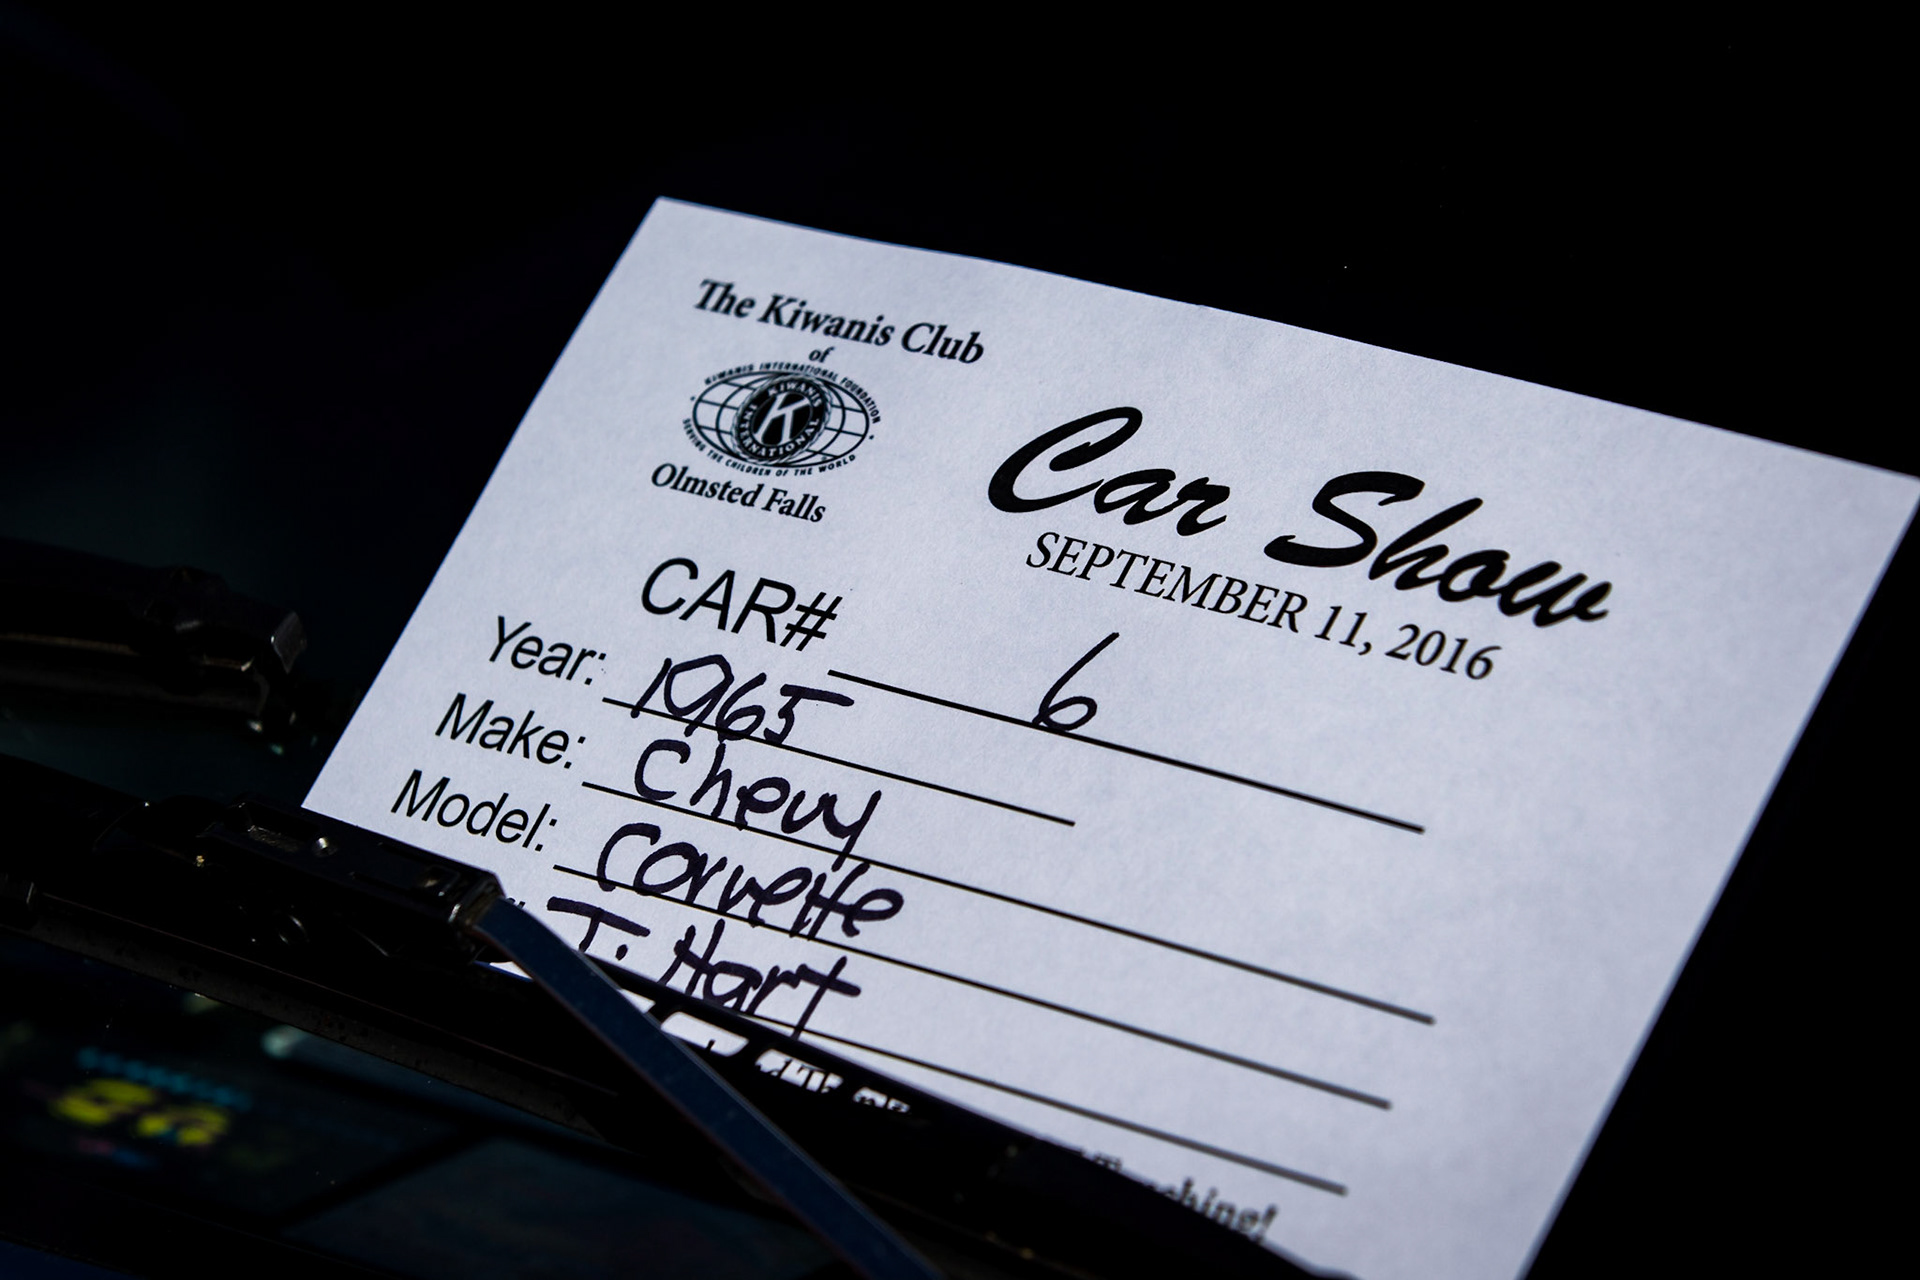 The Kiwanis Club
of
KIWANIS INTERNATIONAL FOUNDATION
KIWANIS
K
INTERNATIONAL
SERVING THE CHILDREN OF THE WORLD
Olmsted Falls
Car Show
SEPTEMBER 11, 2016
CAR# 6
Year: 1965
Make: Chevy
Model: Corvette
T. Hart